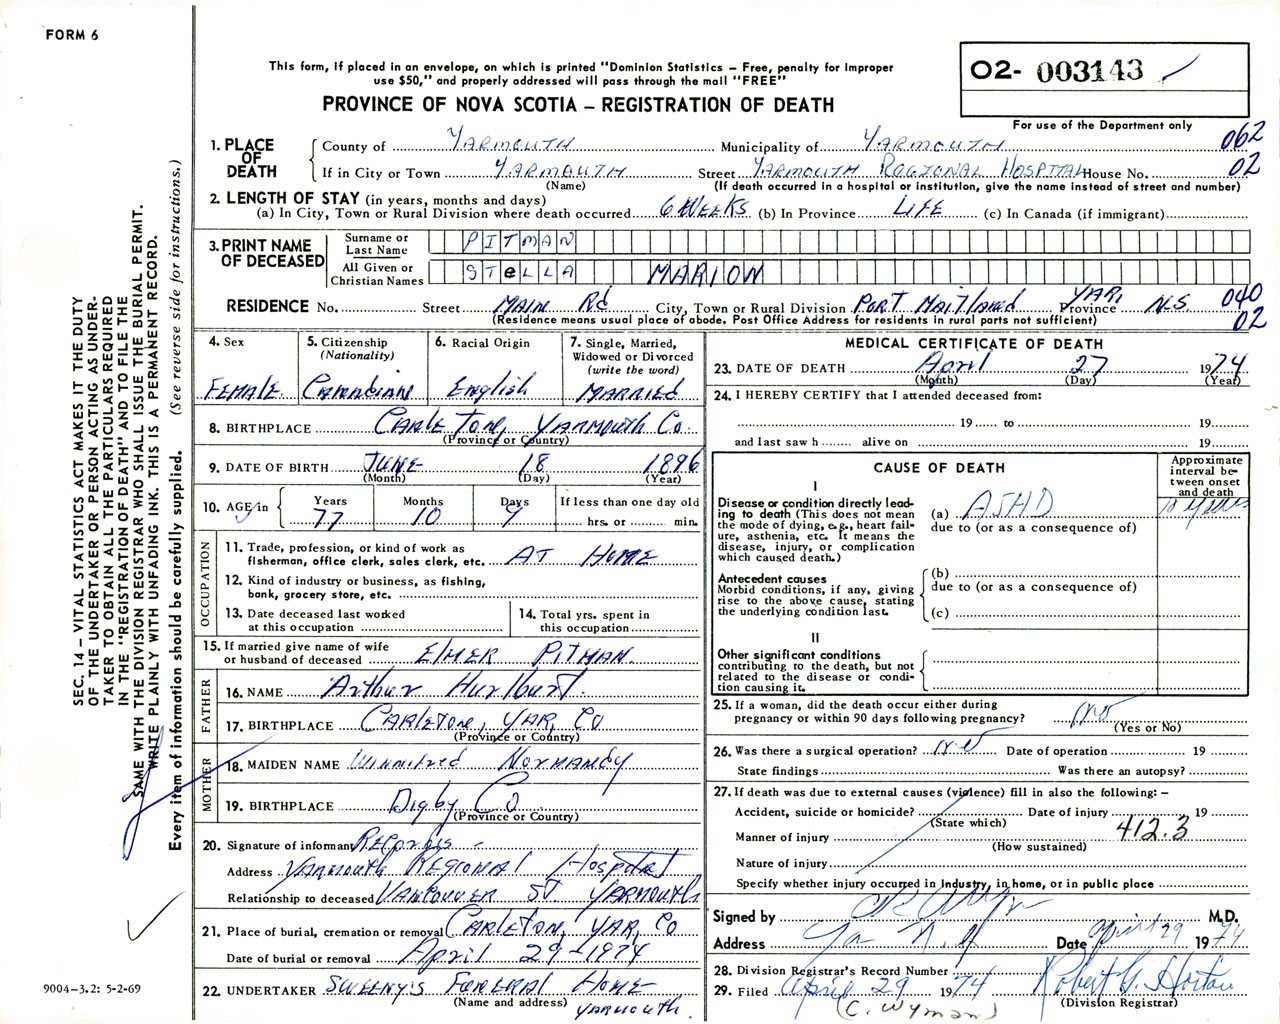 FORM 6
This form, if placed in an envelope, on which is printed "Dominion Statistics – Free, penalty for improper
use $50," and properly addressed will pass through the mail "FREE"
PROVINCE OF NOVA SCOTIA – REGISTRATION OF DEATH
02- 003143
For use of the Department only
1. PLACE OF DEATH
County of YARMOUTH Municipality of YARMOUTH 062
If in City or Town YARMOUTH Street YARMOUTH REGIONAL HOSPITAL House No. 02
(Name) (If death occurred in a hospital or institution, give the name instead of street and number)
2. LENGTH OF STAY (in years, months and days)
(a) In City, Town or Rural Division where death occurred 6 WEEKS (b) In Province LIFE (c) In Canada (if immigrant)
3. PRINT NAME OF DECEASED
Surname or Last Name PITMAN
All Given or Christian Names STELLA MARION
RESIDENCE No. Street MAIN Rd City, Town or Rural Division PORT MAITLAND YAR, Province N.S. 040
(Residence means usual place of abode. Post Office Address for residents in rural parts not sufficient) 02
4. Sex FEMALE
5. Citizenship (Nationality) Canadian
6. Racial Origin English
7. Single, Married, Widowed or Divorced (write the word) MARRIED
8. BIRTHPLACE CARLETON, YARMOUTH Co.
(Province or Country)
9. DATE OF BIRTH JUNE 18 1896
(Month) (Day) (Year)
10. AGE in
Years 77 Months 10 Days 9 If less than one day old hrs. or min.
OCCUPATION
11. Trade, profession, or kind of work as
fisherman, office clerk, sales clerk, etc. AT HOME
12. Kind of industry or business, as fishing,
bank, grocery store, etc.
13. Date deceased last worked
at this occupation
14. Total yrs. spent in
this occupation
15. If married give name of wife
or husband of deceased ELMER PITMAN.
FATHER
16. NAME Arthur Hurlburt.
17. BIRTHPLACE CARLETON, YAR, Co
(Province or Country)
MOTHER
18. MAIDEN NAME Winnifred NORMANDY
19. BIRTHPLACE Digby Co.
(Province or Country)
20. Signature of informant RECORDS -
Address YARMOUTH REGIONAL Hospital
Relationship to deceased VANCOUVER ST. YARMOUTH
21. Place of burial, cremation or removal CARLETON, YAR, Co
Date of burial or removal April 29-1974
22. UNDERTAKER SWEENY'S FUNERAL HOME
(Name and address) YARMOUTH.
MEDICAL CERTIFICATE OF DEATH
23. DATE OF DEATH April 27 1974
(Month) (Day) (Year)
24. I HEREBY CERTIFY that I attended deceased from:
19 to 19
and last saw h alive on 19
CAUSE OF DEATH
Approximate interval between onset and death
I
Disease or condition directly lead-
ing to death (This does not
mean the mode of dying, e.g., heart fail-
ure, asthenia, etc. It means the
disease, injury, or complication
which caused death.)
(a) ASHD 10 years
due to (or as a consequence of)
Antecedent causes
Morbid conditions, if any, giving
rise to the above cause, stating
the underlying condition last.
(b)
due to (or as a consequence of)
(c)
II
Other significant conditions
contributing to the death, but not
related to the disease or condi-
tion causing it.
25. If a woman, did the death occur either during
pregnancy or within 90 days following pregnancy? no
(Yes or No)
26. Was there a surgical operation? no Date of operation 19
State findings Was there an autopsy?
27. If death was due to external causes (violence) fill in also the following: –
Accident, suicide or homicide? Date of injury 19
(State which) 412.3
Manner of injury
(How sustained)
Nature of injury
Specify whether injury occurred in industry, in home, or in public place
Signed by M.D.
Address Yar N.S Date April 29 1974
28. Division Registrar's Record Number
29. Filed April 29 1974 Robert G. Horton
(Division Registrar)
(C. Wyman)
SEC. 14 – VITAL STATISTICS ACT MAKES IT THE DUTY
OF THE UNDERTAKER OR PERSON ACTING AS UNDER-
TAKER TO OBTAIN ALL THE PARTICULARS REQUIRED
IN THE "REGISTRATION OF DEATH" AND TO FILE THE
SAME WITH THE DIVISION REGISTRAR WHO SHALL ISSUE THE BURIAL PERMIT.
WRITE PLAINLY WITH UNFADING INK. THIS IS A PERMANENT RECORD.
Every item of information should be carefully supplied. (See reverse side for instructions.)
9004-3.2: 5-2-69